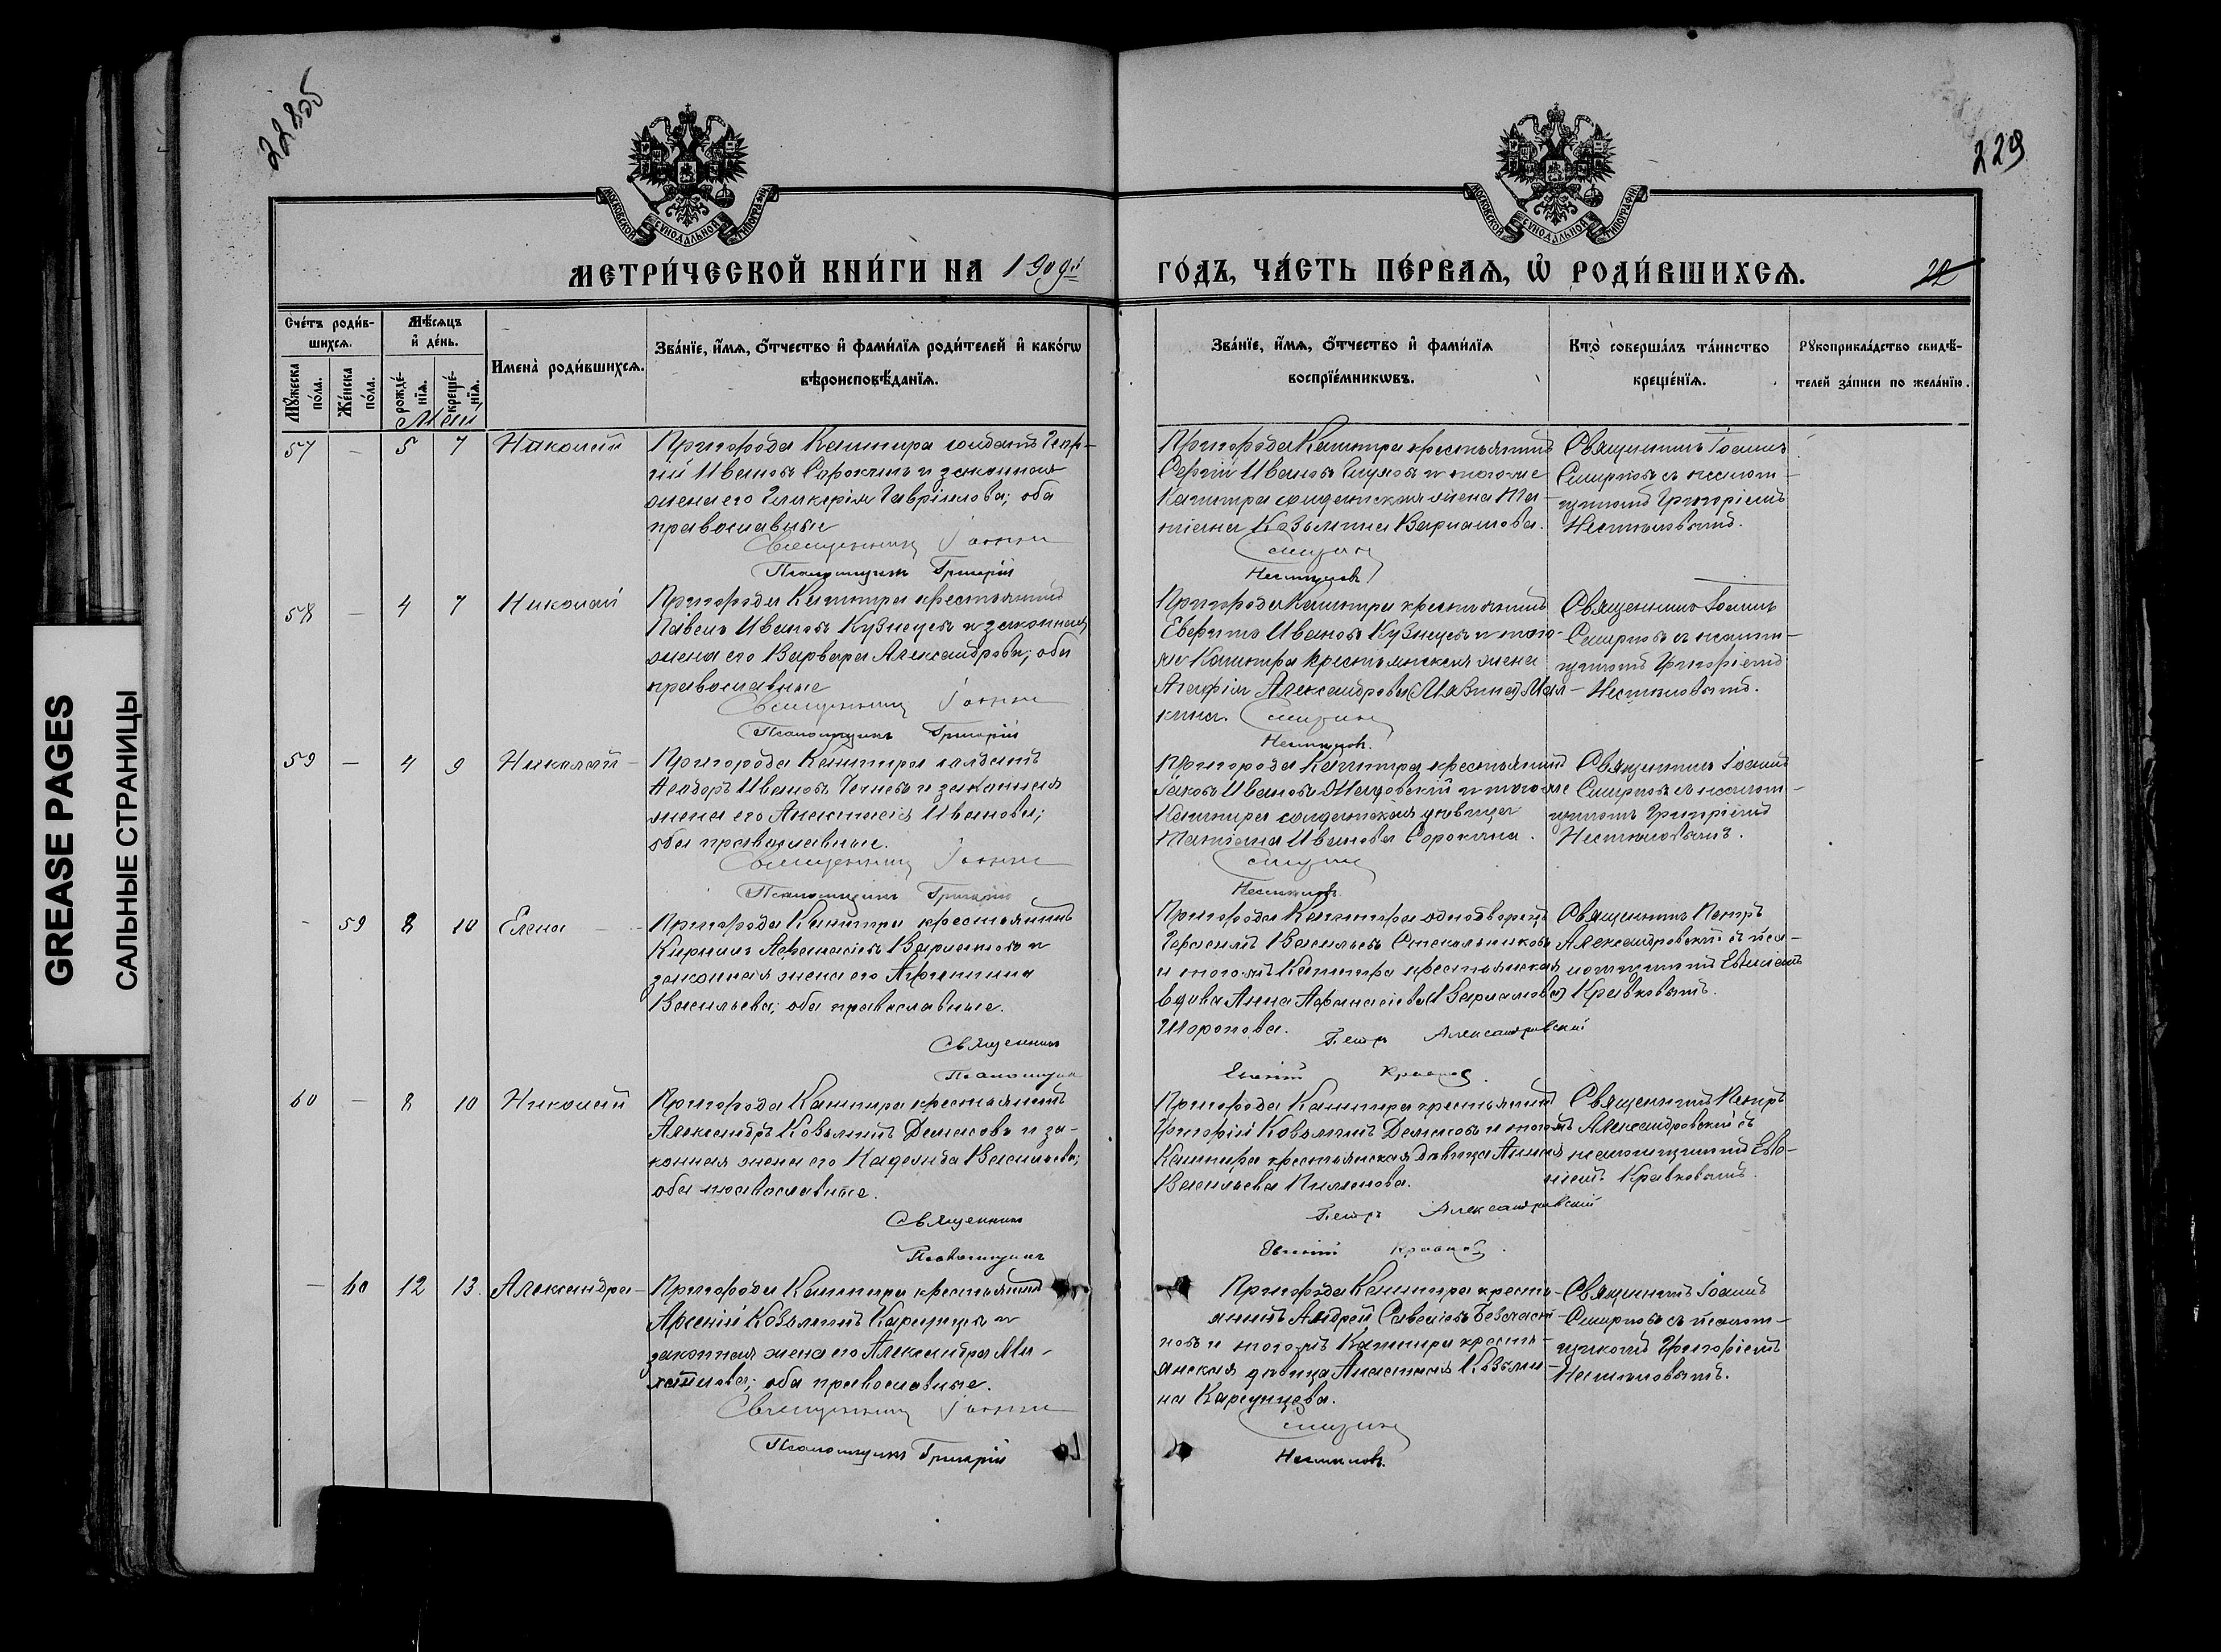 228об
229
МОСКОВСКОЙ СѴНОДАЛЬНОЙ ТИПОГРАФІИ
МОСКОВСКОЙ СѴНОДАЛЬНОЙ ТИПОГРАФІИ
МЕТРИ́ЧЕСКОЙ КНИ́ГИ НА 1909й
ГО́ДЪ, ЧА́СТЬ ПЕ́РВАѦ, Ѽ РОДИ́ВШИХСѦ.
22
Сче́тъ роди́в-
шихсѧ.
Мꙋ́жеска по́ла.
Же́нска по́ла.
Мѣ́сѧцъ
и҆ де́нь.
рожде́-
нїѧ.
креще́-
нїѧ.
Май
И҆мена̀ роди́вшихсѧ.
Зва́нїе, и҆́мѧ, ѻ҆́тчество и҆ фами́лїѧ роди́телей и҆ како́гѡ
вѣроисповѣ́данїѧ.
Зва́нїе, и҆́мѧ, ѻ҆́тчество и҆ фами́лїѧ
воспрїе́мникѡвъ.
Кто̀ соверша́лъ та́инство
креще́нїѧ.
Рꙋкоприкла́дство свидѣ́-
телей за́писи по жела́нїю.
57 – 5 7 Николай
Пригорода Каштира солдатъ Геор-
гій Ивановъ Сорокинъ и законная
жена его Гликерія Гавріилова; оба
православные
Священникъ Іоаннъ
Псаломщикъ Григорій
Пригорода Каштира крестьянинъ
Сергій Ивановъ и того-же
Каштира солдатская жена Та-
тіана Козьмина Варламова.
Смирновъ
Нестеловъ
Священникъ Іоаннъ
Смирновъ съ псалом-
щикомъ Григоріемъ
58 – 4 7 Николай
Пригорода Каштира крестьянинъ
Павелъ Ивановъ Кузнецовъ и законная
жена его Варвара Александрова; оба
православные
Священникъ Іоаннъ
Псаломщикъ Григорій
Пригорода Каштира крестьянинъ
Ивановъ Кузнецовъ и того-
же Каштира крестьянская жена
Агафія Александрова (Мазина) Мал-
кина.
Смирновъ
Священникъ Іоаннъ
Смирновъ съ псалом-
щикомъ Григоріемъ
59 – 4 9 Николай
Пригорода Каштира солдатъ
Ѳеодоръ Ивановъ и законная
жена его Анастасія Иванова;
оба православные.
Священникъ Іоаннъ
Псаломщикъ Григорій
Пригорода Каштира крестьянинъ
Іаковъ Ивановъ и того же
Каштира солдатская дѣвица
Татіана Иванова Сорокина.
Смирновъ
Священникъ Іоаннъ
Смирновъ съ псалом-
щикомъ Григоріемъ
– 59 8 10 Елена
Пригорода Каштира крестьянинъ
Кириллъ Аѳанасіевъ Варламовъ и
законная жена его Агрипина
Васильева; оба православные.
Священникъ
Псаломщикъ
Пригорода Каштира однодворецъ
Герасимъ Васильевъ Стекольниковъ
и того-жъ Каштира крестьянская
вдова Анна Афанасіева (Варламова)
Шоропова.
Петръ Александровскій
Евгеній Кравковъ.
Священникъ Петръ
Александровскій съ пса-
ломщикомъ Евгеніемъ
Кравковымъ.
60 – 8 10 Николай
Пригорода Каштира крестьянинъ
Александръ Козьминъ Демаковъ и за-
конная жена его Надежда Васильева;
оба православные.
Священникъ
Псаломщикъ
Пригорода Каштира крестьянинъ
Григорій Козьминъ Демаковъ и того-жъ
Каштира крестьянская дѣвица Анна
Васильева Пименова.
Петръ Александровскій
Евгеній Кравковъ.
Священникъ Петръ
Александровскій съ
псаломщикомъ Евге-
ніемъ Кравковымъ.
– 60 12 13. Александра
Пригорода Каштира крестьянинъ
Арсеній Козьминъ Карсунцевъ и
законная жена его Александра Ми-
хайлова; оба православные.
Священникъ Іоаннъ
Псаломщикъ Григорій
Пригорода Каштира кресть-
янинъ Андрей Савельевъ
новъ и того-жъ Каштира кресть-
янская дѣвица Анастасія Козьми-
на Карсунцева.
Смирновъ
Священникъ Іоаннъ
Смирновъ съ псалом-
щикомъ Григоріемъ
GREASE PAGES
САЛЬНЫЕ СТРАНИЦЫ